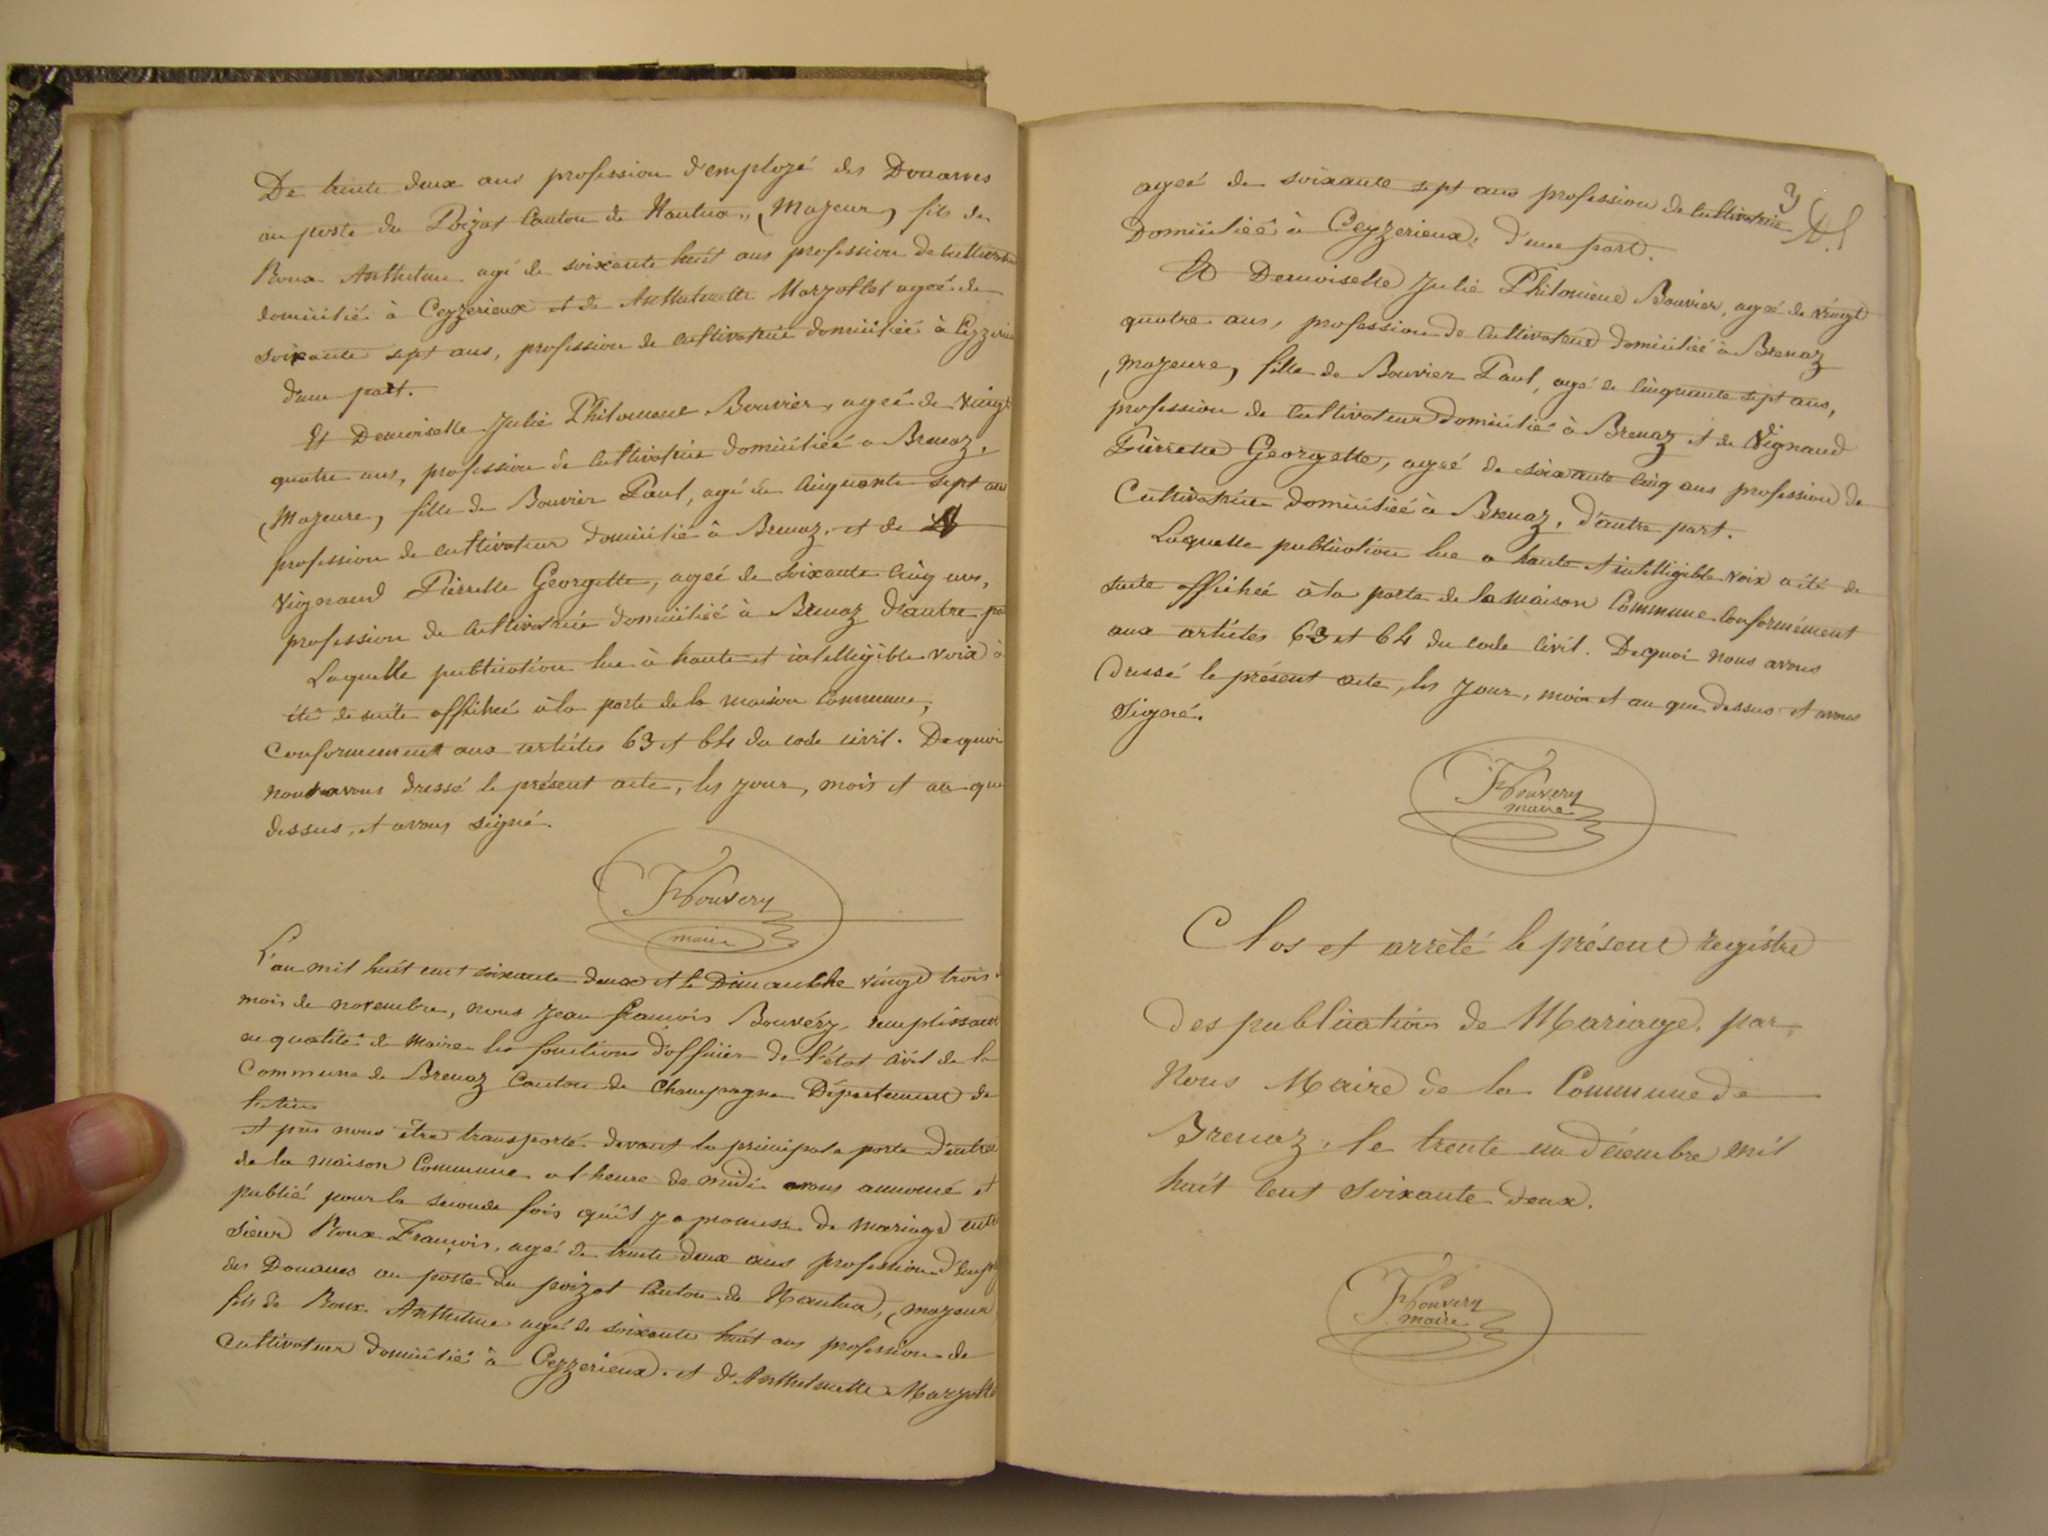 De trente deux ans profession d'employé des Douanes
au poste du Poizat Canton de Nantua, (Majeur) fils de
Roux Anthelme agé de soixante huit ans profession de cultivateur
domicilié à Ceyzerieux et de Anthelmette Marjollet ageé de
soixante sept ans, profession de cultivatrice domiciliée à Ceyzerieu
d'une part.
Et Demoiselle Julie Philomene Bouvier, ageé de vingt
quatre ans, profession de Cultivatrice domiciliéé a Brenaz,
(Majeure) fille de Bouvier Paul, agé de Cinquante sept ans
profession de cultivateur domicilié à Brenaz, et de
Vignaud Pierrette Georgette, ageé de soixante Cinq ans,
profession de Cultivatrice domiciliéé à Brenaz d'autre pa
Laquelle publication lue à haute et intelligible voix à
été de suite affichéé à la porte de la maison Commune,
Conformement aux articles 63 et 64 du code civil. De quoi
nous avons dressé le présent acte, les jour, mois et an que
dessus, et avons signé.
JF Bouvery
maire
L'an mil huit cent soixante deux et le Dimanche vingt trois
mois de novembre, nous Jean francois Bouvéry, remplissant
en qualité de Maire les fonctions d'officier de l'état Civil de la
Commune de Brenaz Canton de Champagne Département de
l'Ain
et pris nous être transporté devant la principale porte d'entrée
de la maison Commune a l'heure de midi avons annoncé et
publié pour la seconde fois qu'il y a promesse de mariage entre
sieur Roux François, agé de trente deux ans profession d'emp
des Douanes au poste du poizat Canton de Nantua, (majeur)
fils de Roux Anthelme agé de soixante huit ans profession de
Cultivateur domicilié à Ceyzerieux. et d'Anthelmette Marjollet
3
ageé de soixante sept ans profession de cultivatrice
Domiciliéé à Ceyzerieux, d'une part.
Et Demoiselle Julie Philomène Bouvier, ageé de vingt
quatre ans, profession de Cultivateur domiciliéé à Brenaz
(majeure) fille de Bouvier Paul, agé de Cinquante sept ans,
profession de Cultivateur domicilié à Brenaz et de Vignaud
Pierrette Georgette, ageé de soixante Cinq ans profession de
Cultivatrice domiciliéé à Brenaz, d'autre part.
Laquelle publication lue a haute et intelligible voix a été de
suite affichéé à la porte de la maison Commune Conformément
aux articles 63 et 64 du code Civil. De quoi nous avons
dressé le présent acte, les jour, mois et an que dessus et avons
signé.
JF Bouvery
maire
Clos et arrêté le présent registre
des publications de Mariage, par
Nous Maire de la Commune de
Brenaz, le trente un décembre mil
huit Cent soixante deux.
JF Bouvery
maire